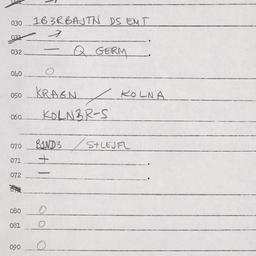 030 1B3RBAJTN DS EMT
031 →
032 — Q GERM
040 O
050 KRAGN / KOLNA
060 KOLN3R-S
070 BAND3 / S+LEJFL
071 +
072 —
080 O
081 O
090 O